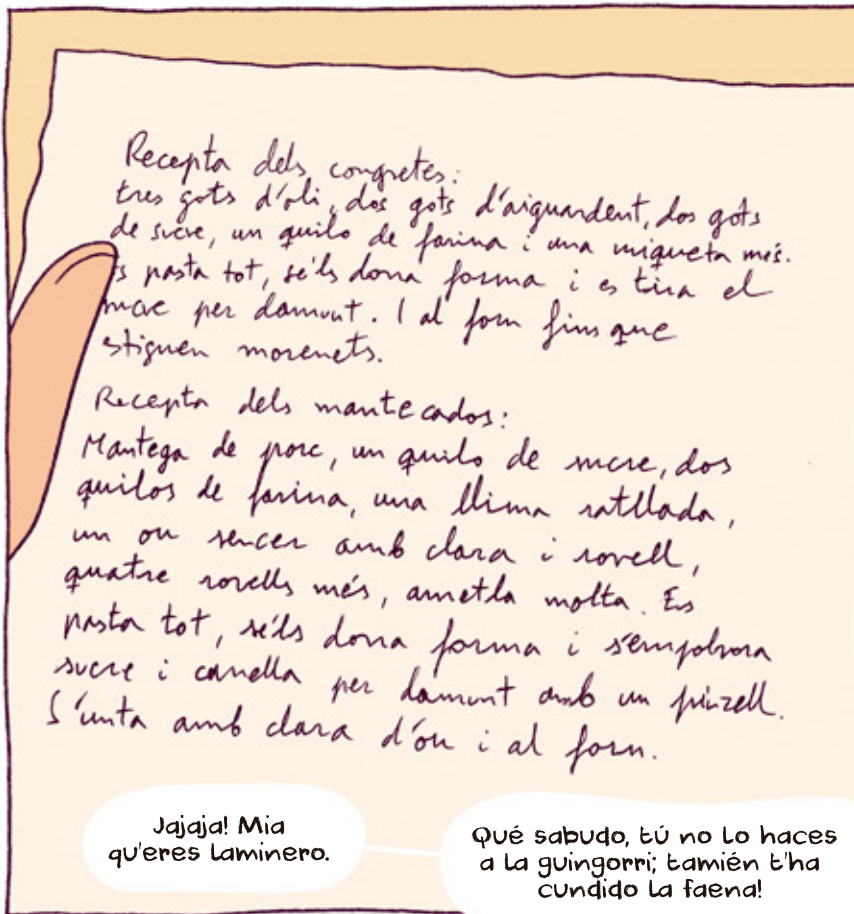 Recepta dels congretes:
tres gots d'oli, dos gots d'aiguardent, dos gots
de sucre, un quilo de farina i una miqueta més.
s pasta tot, se'ls dona forma i es tira el
sucre per damunt. I al forn fins que
estiguen morenets.
Recepta dels mantecados:
Mantega de porc, un quilo de sucre, dos
quilos de farina, una llima ratllada,
un ou sencer amb clara i rovell,
quatre rovells més, ametla molta. Es
pasta tot, se'ls dona forma i s'empolvora
sucre i canella per damunt amb un pinzell.
S'unta amb clara d'ou i al forn.
Jajaja! Mia
qu'eres laminero.
Qué sabudo, tú no lo haces
a la guingorri; tamién t'ha
cundido la faena!